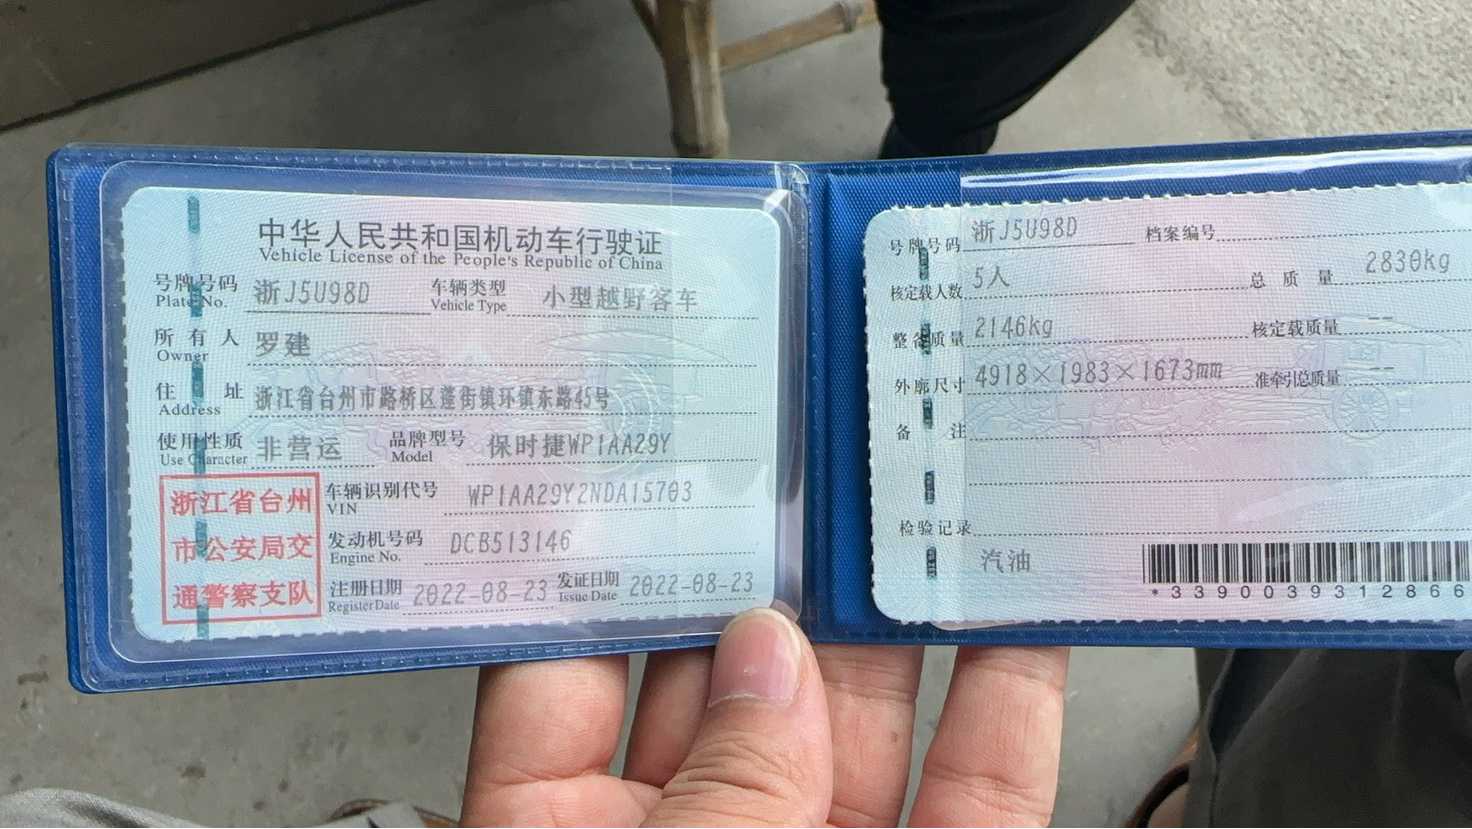 中华人民共和国机动车行驶证
Vehicle License of the People's Republic of China
号牌号码 浙J5U98D 车辆类型 小型越野客车
Plate No. Vehicle Type
所有人 罗建
Owner
住址 浙江省台州市路桥区蓬街镇环镇东路45号
Address
使用性质 非营运 品牌型号 保时捷WP1AA29Y
Use Character Model
浙江省台州
市公安局交
通警察支队
车辆识别代号 WP1AA29Y2NDA15703
VIN
发动机号码 DCB513146
Engine No.
注册日期 2022-08-23 发证日期 2022-08-23
Register Date Issue Date
号牌号码 浙J5U98D 档案编号
核定载人数 5人 总质量 2830kg
整备质量 2146kg 核定载质量 --
外廓尺寸 4918×1983×1673mm 准牵引总质量 --
备注
检验记录
汽油
*3390039312866